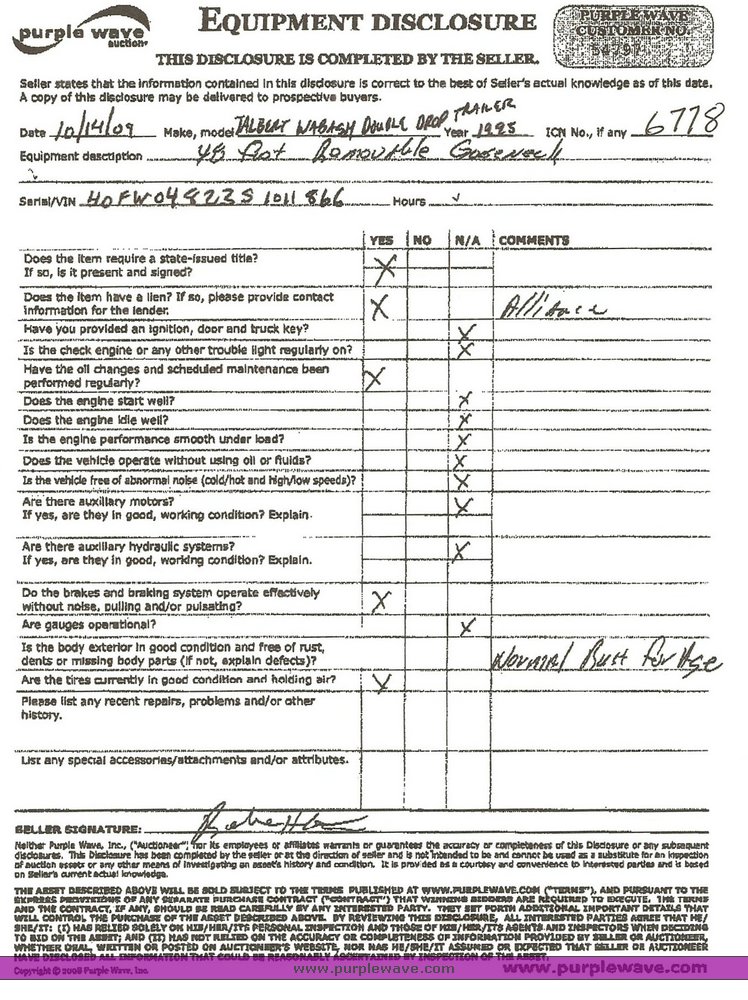 purple wave
auction
EQUIPMENT DISCLOSURE
PURPLE WAVE
CUSTOMER NO.
54797
THIS DISCLOSURE IS COMPLETED BY THE SELLER.
Seller states that the information contained in this disclosure is correct to the best of Seller's actual knowledge as of this date.
A copy of this disclosure may be delivered to prospective buyers.
Date 10/14/09 Make, model TALBERT WABASH DOUBLE DROP TRAILER Year 1995 ICN No., if any 6778
Equipment description 48 Foot Removable Gooseneck
Serial/VIN 40FW04823S1011866 Hours
YES NO N/A COMMENTS
Does the item require a state-issued title?
If so, is it present and signed? X
Does the item have a lien? If so, please provide contact
information for the lender. X Alliance
Have you provided an ignition, door and truck key? X
Is the check engine or any other trouble light regularly on? X
Have the oil changes and scheduled maintenance been
performed regularly? X
Does the engine start well? X
Does the engine idle well? X
Is the engine performance smooth under load? X
Does the vehicle operate without using oil or fluids? X
Is the vehicle free of abnormal noise (cold/hot and high/low speeds)? X
Are there auxiliary motors? X
If yes, are they in good, working condition? Explain.
Are there auxiliary hydraulic systems? X
If yes, are they in good, working condition? Explain.
Do the brakes and braking system operate effectively
without noise, pulling and/or pulsating? X
Are gauges operational? X
Is the body exterior in good condition and free of rust,
dents or missing body parts (if not, explain defects)? Normal Rust for Age
Are the tires currently in good condition and holding air? X
Please list any recent repairs, problems and/or other
history.
List any special accessories/attachments and/or attributes.
SELLER SIGNATURE:
Neither Purple Wave, Inc., ("Auctioneer") nor its employees or affiliates warrants or guarantees the accuracy or completeness of this Disclosure or any subsequent
disclosures. This Disclosure has been completed by the seller or at the direction of seller and is not intended to be and cannot be used as a substitute for an inspection
of auction assets or any other means of investigating an asset's history and condition. It is provided as a courtesy and convenience to interested parties and is based
on Seller's current actual knowledge.
THE ASSET DESCRIBED ABOVE WILL BE SOLD SUBJECT TO THE TERMS PUBLISHED AT WWW.PURPLEWAVE.COM ("TERMS"), AND PURSUANT TO THE
EXPRESS PROVISIONS OF ANY SEPARATE PURCHASE CONTRACT ("CONTRACT") THAT WINNING BIDDERS ARE REQUIRED TO EXECUTE. THE TERMS
AND CONTRACT, IF ANY, SHOULD BE READ CAREFULLY BY ANY INTERESTED PARTY. THEY SET FORTH ADDITIONAL IMPORTANT DETAILS THAT
WILL CONTROL THE PURCHASE OF THE ASSET DESCRIBED ABOVE. BY REVIEWING THIS DISCLOSURE, ALL INTERESTED PARTIES AGREE THAT HE/
SHE/IT: (I) HAS RELIED SOLELY ON HIS/HER/ITS PERSONAL INSPECTION AND THOSE OF HIS/HER/ITS AGENTS AND INSPECTORS WHEN DECIDING
TO BID ON THE ASSET; AND (II) HAS NOT RELIED ON THE ACCURACY OR COMPLETENESS OF INFORMATION PROVIDED BY SELLER OR AUCTIONEER,
WHETHER ORAL, WRITTEN OR POSTED ON AUCTIONEER'S WEBSITE, NOR HAS HE/SHE/IT ASSUMED OR EXPECTED THAT SELLER OR AUCTIONEER
HAVE DISCLOSED ALL INFORMATION THAT COULD BE REASONABLY ASCERTAINED BY INSPECTION OF THE ASSET.
Copyright © 2008 Purple Wave, Inc.
www.purplewave.com
www.purplewave.com